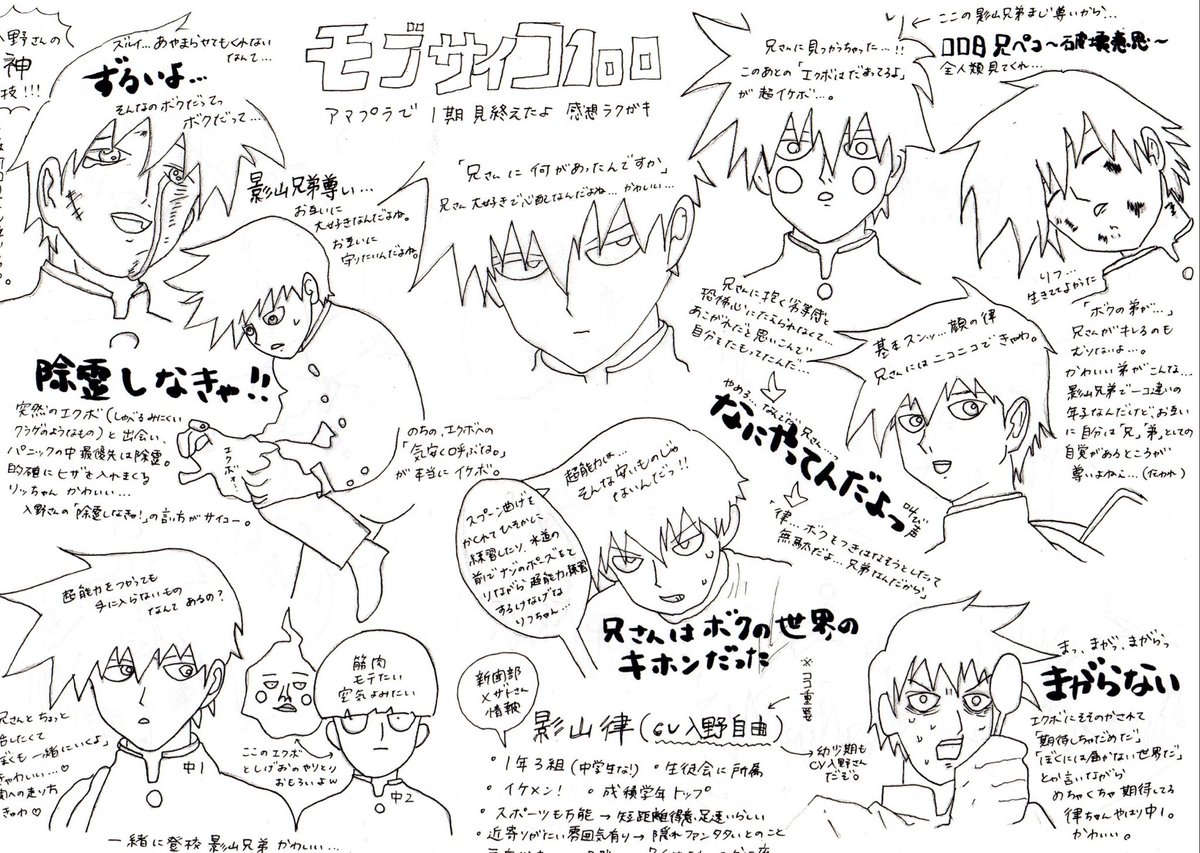 野さんの
神
技!!!
ズルイ…あやまらせてもくれない
なんて…
ずるいよ…
そんなのボクだってっ
ボクだって…
モブサイコ100
アマプラで 1期 見終えたよ 感想ラクガキ
影山兄弟尊い…
お互いに
大好きなんだよね。
お互いに
守りたいんだよね。
「兄さんに 何があったんですか」
兄さん大好きで心配なんだよね…かわいい…
兄さんに見つかっちゃった…!!
このあとの「エクボはだまってろよ」
が超イケボ…。
ここの影山兄弟まじ尊いから…
008 兄ペコ〜破壊意思〜
全人類見てくれ…
りつ…
生きててよかった
「ボクの弟が…」
兄さんがキレるのも
むりないよ…。
かわいい弟がこんな…
影山兄弟で一コ違いの
年子なんだけどお互い
に自分は「兄」「弟」としての
自覚があるところが
尊いよねぇ…(だわ)
兄さんに抱く劣等感と
恐怖心にたえられなくて…
あこがれだと思いこんで
自分をたもってたんだ…
基本スンッ…顔の律
兄さんにはニコニコできゃわ。
やめろ…なんでだ兄さん…
なにやってんだよっ
叫び声
「律…ボクをつきはなそうとしたって
無駄だよ…兄弟なんだから」
除霊しなきゃ!!
突然のエクボ(しゃべるみにくい
クラゲのようなもの)と出会い、
パニックの中最優先は除霊。
的確にヒザを入れまくる
リッちゃん かわいい…
入野さんの「除霊しなきゃ!」の言い方がサイコー。
エクボォ…
のちの、エクボへの
「気安く呼ぶな。」
が本当にイケボ。
超能力は…
そんな安いものじゃ
ないんだっ!!
スプーン曲げを
かくれてひそかに
練習したり、水道の
前でナゾのポーズをと
りながら超能力練習
するけなげな
りっちゃん…
兄さんはボクの世界の
キホンだった
超能力をつかっても
手に入らないもの
なんて あるの?
兄さんとちょっと
ぼくも一緒にいくよ」
きゃわいい…♡
の走り方
きゅわ♡
中1
筋肉
モテたい
空気よみたい
中2
ここのエクボ
としげおのやりとり
おもろいよw
一緒に登校 影山兄弟 かわいい…
新聞部
メザトさん
情報
※ココ重要
影山律(CV入野自由)
→幼少期も
CV入野さん
だぞ。
・1年3組(中学生なり) ・生徒会に所属
・イケメン! ・成績学年トップ
・スポーツも万能→短距離得意、足速いらしい
・近寄りがたい雰囲気有り→隠れファン多いとのこと
まっ、まが、まがらっ
まがらない
エクボにそそのかされて
「期待しちゃだめだ」
「ぼくには届かない世界だ」
とか言いながら
めちゃくちゃ期待してる
律ちゃんやはり中1。
かわいい。